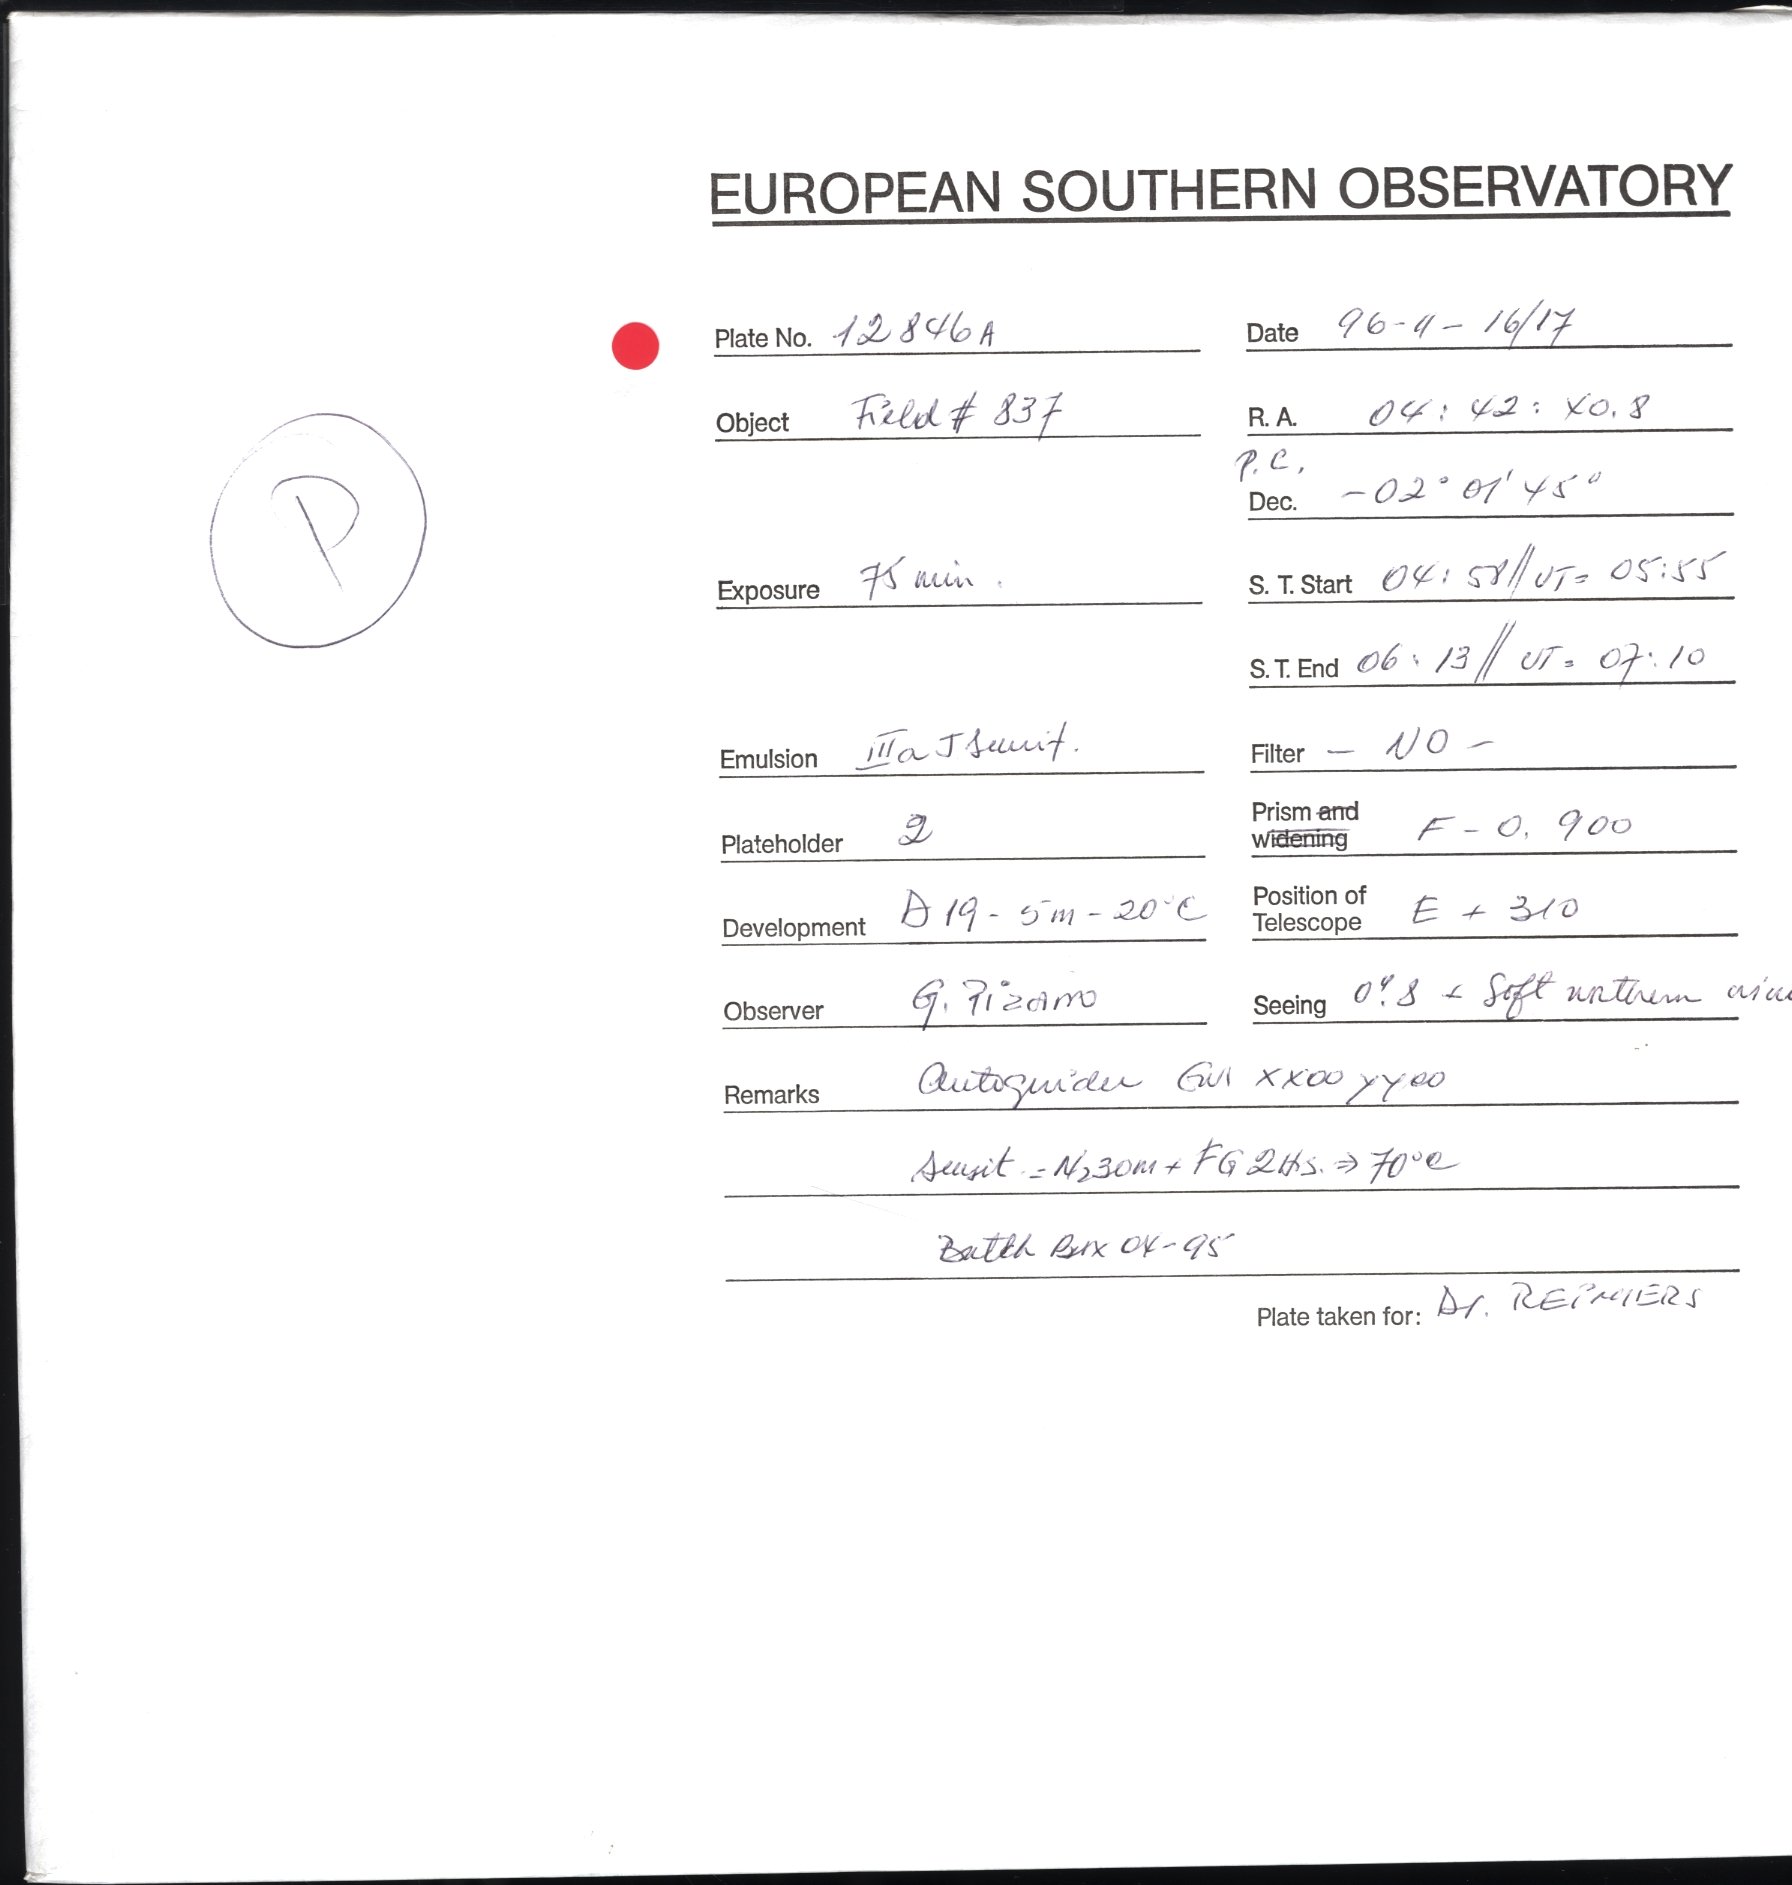 EUROPEAN SOUTHERN OBSERVATORY
Plate No. 12846A
Date 96-11-16/17
Object Field # 837
R. A. 04: 42: 40.8
P.C.
Dec. -02° 01' 45"
Exposure 75 min.
S. T. Start 04: 58 // UT= 05:55
S. T. End 06: 13 // UT= 07:10
Emulsion IIIa J Sensit.
Filter - NO -
Plateholder 2
Prism and
widening F - 0. 900
Development D 19 - 5m - 20°C
Position of
Telescope E + 310
Observer G. Pizarro
Seeing 0".8 + Soft northern
Remarks Autoguider XX00 YY00
Sensit = N2 30m + FG 2Hs. ⇒ 70°C
Batch Box 04-95
Plate taken for: Dr. REIMERS
P